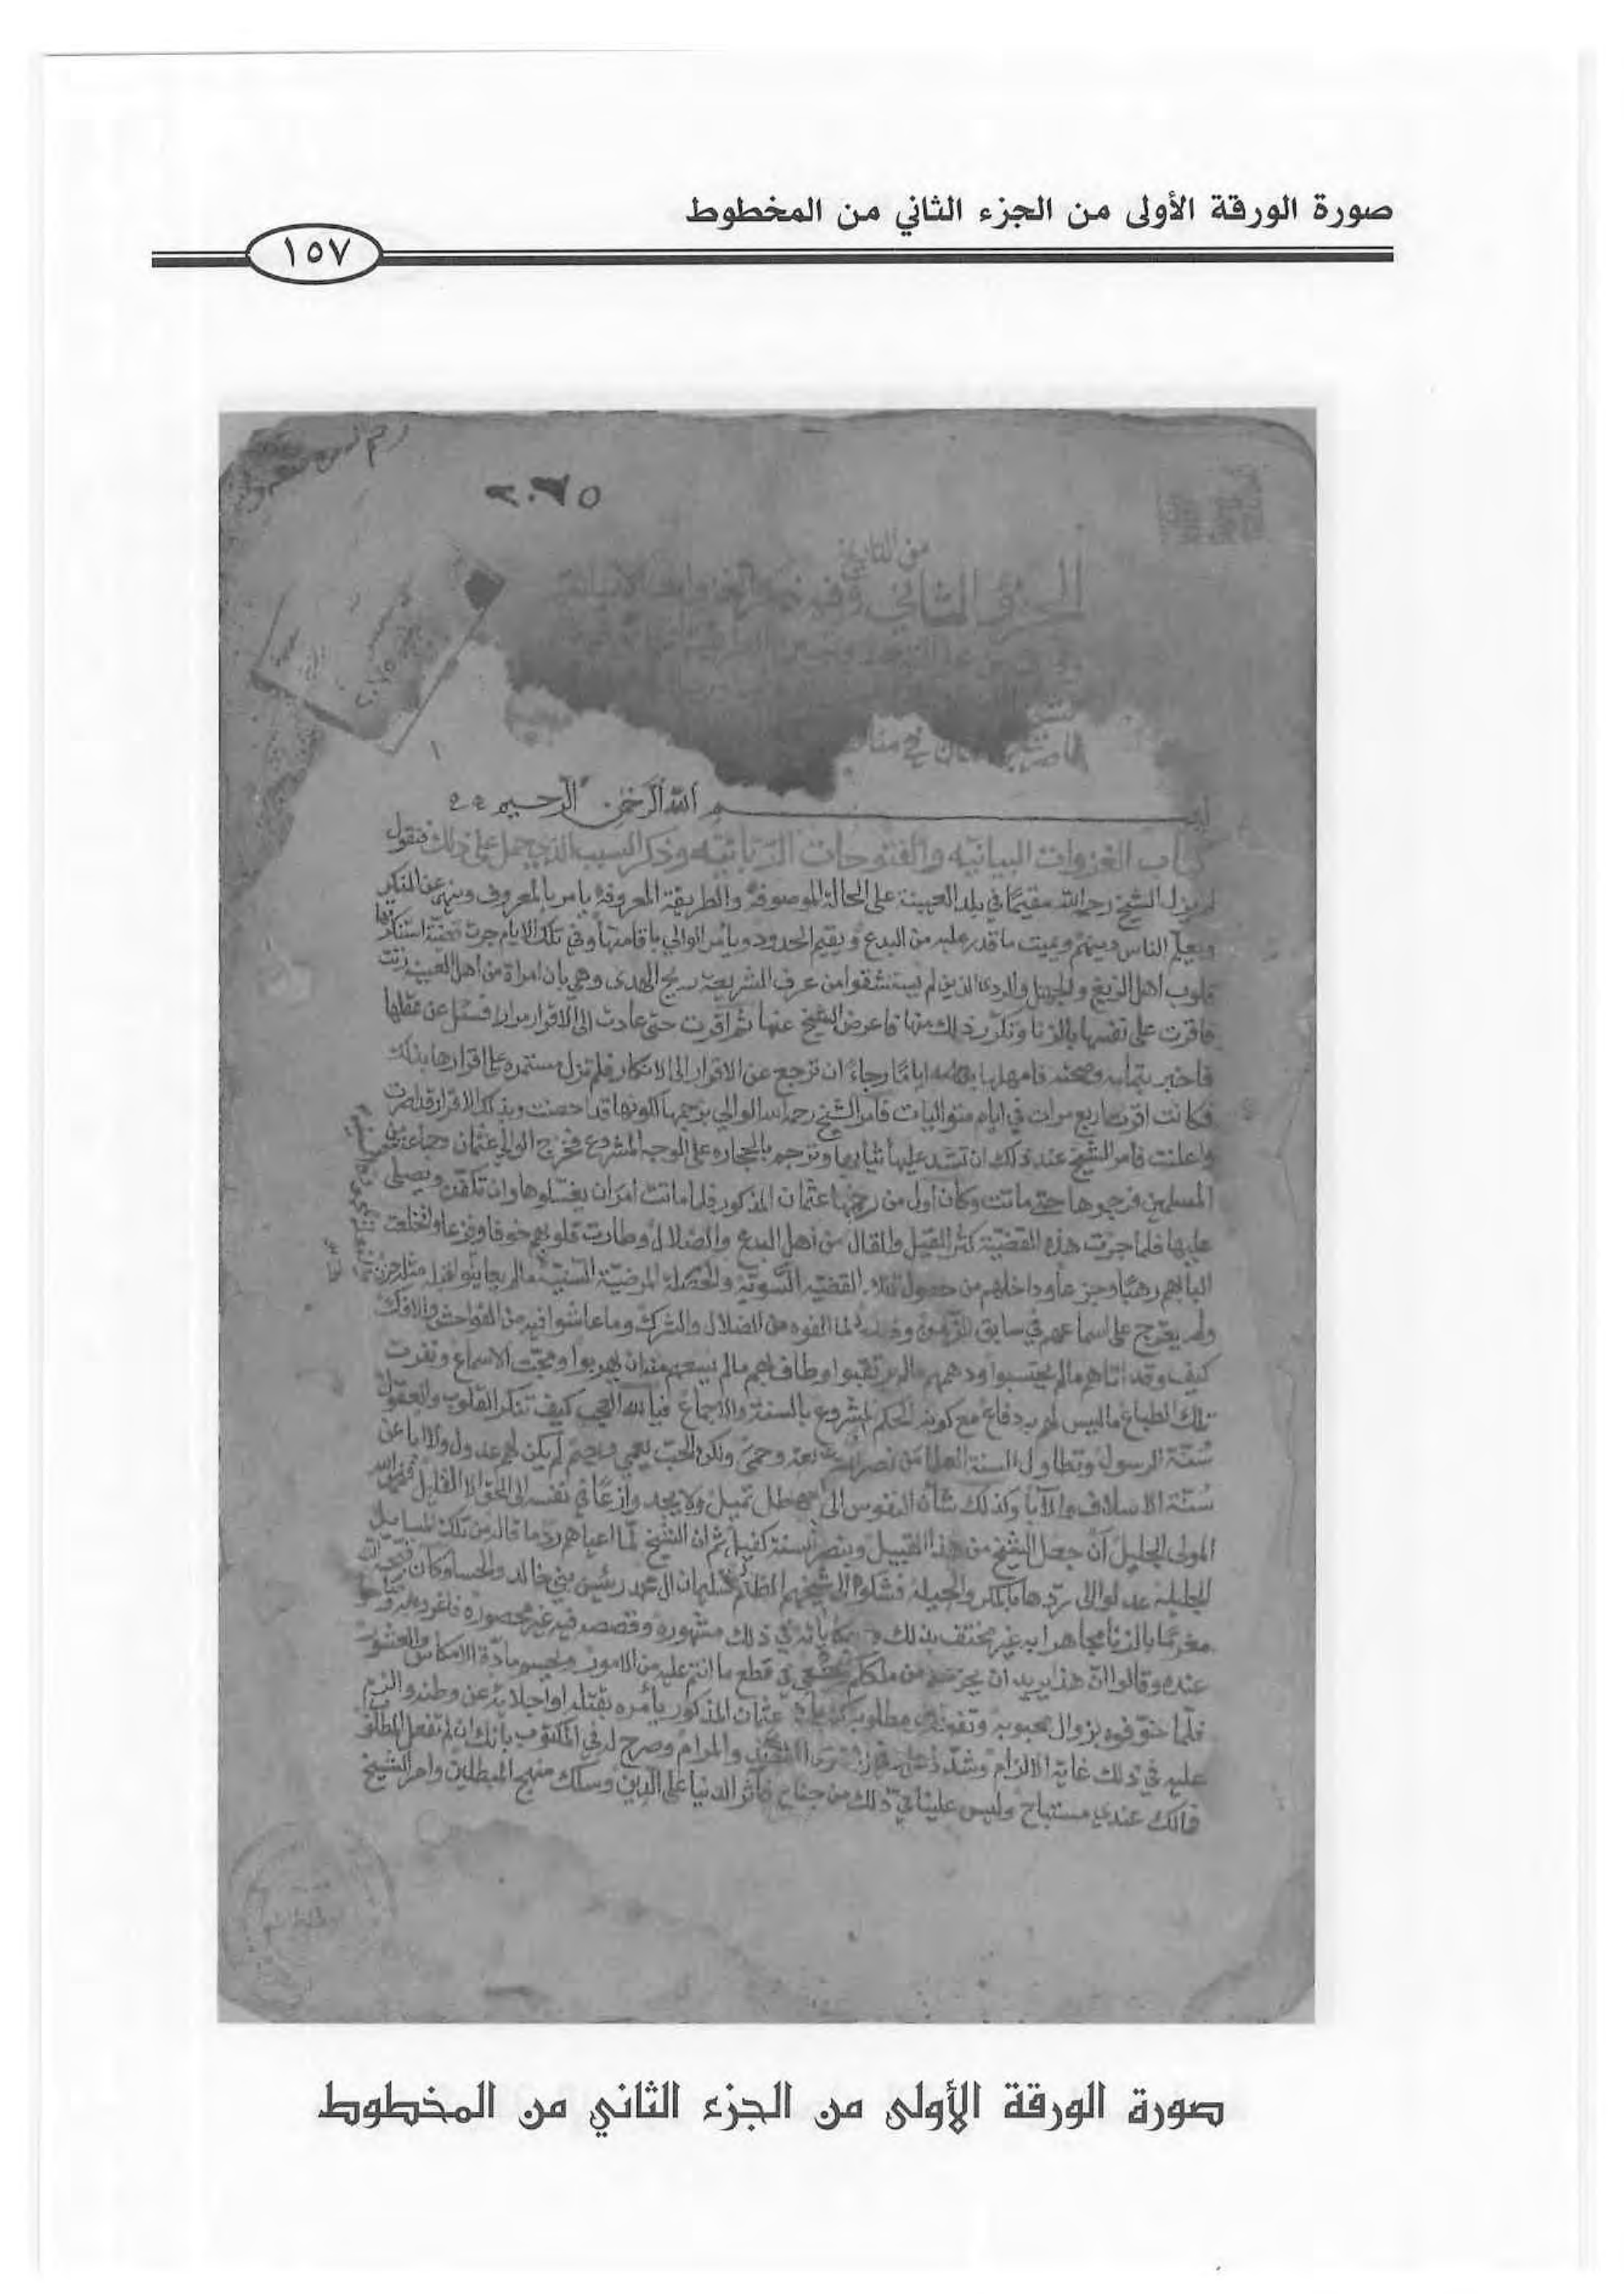 صورة الورقة الأولى من الجزء الثاني من المخطوط
١٥٧
٢٠٧٥
من التاريخ
الجزؤ الثاني وفيه
بسم الله الرحمن الرحيم
كتاب الغزوات البيانيه والفتوحات الربانيه وذكر السبب الذي حمل على ذلك فنقول
لم يزل الشيخ رحمه الله مقيما في بلد العيينة على الحالة الموصوفة والطريقة المعروفة يامر بالمعروف وينهى عن المنكر
ويعلم الناس دينهم ويميت ما قدر عليه من البدع ويقيم الحدود ويأمر الوالي باقامتها وفي تلك الايام جرت قضية استنكرتها
قلوب اهل الزيغ والجهل والردى الذين لم يستنشقوا من عرف الشريعة ريح الهدى وهي بان امراة من اهل العيينه زنت
فاقرت على نفسها بالزنا وتكرر ذلك منها فاعرض الشيخ عنها ثم اقرت حتى عادت الى الاقرار مرارا فسئل عن عقلها
فاخبر بتمامه وصحته فامهلها اياما رجاء ان ترجع عن الاقرار الى الانكار فلم تزل مستمره على اقرارها بذلك
فكانت اقرت اربع مرات في ايام متواليات فامر الشيخ رحمه الله الوالي برجمها لكونها قد احصنت وبذلك الاقرار قد اصرت
واعلنت فامر الشيخ عند ذلك ان تشد عليها ثيابها وترجم بالحجاره على الوجه المشروع فخرج الوالي عثمان وجماعة من
المسلمين فرجموها حتى ماتت وكان أول من رجمها عثمان المذكور فلما ماتت امر ان يغسلوها وان تكفن ويصلى
عليها فلما جرت هذه القضية كثر القيل والقال من أهل البدع والضلال وطارت قلوبهم خوفا وفزعا وانخلعت
البابهم رهبا وجزعا وداخلهم من حصول تلك القضيه
ولم يعرج على اسماعهم في سابق وذلك لما الفوه من الضلال والشرك وما عاشوا فيه من الفواحش والافك
كيف وقد اتاهم مالم يحتسبوا ودهمهم مالم يرتقبوا وطاف بهم مالم ان يهربوا ومجت الاسماع ونفرت
تلك الطباع ما ليس لهم به دفاع مع كونه الحكم المشروع بالسنة والاجماع فيا لله العجب كيف تنكر القلوب والعقول
سنة الرسول وتطاول السنة العلما من نصر وحمى ولكن الحب يعمي ويصم لم يكن لهم عدول ولا ابا عن
سنة الاسلاف والآبا وكذلك شأن النفوس الى الباطل تميل ولا يجد وازعا في نفسه الى الحق الا القليل
المولى الجليل أن جعل الشيخ من هذا القبيل وبنصر السنة كفيل ثم ان الشيخ لما اعياهم رد ما قاله من تلك المسايل
الجليله عدلوا الى ردها بالمكر والحيله فشكوه الى شيخهم الظالم سليمان ال محمد رئيس بني خالد والحسا وكان
مغرما بالزنا مجاهرا به غير مختف بذلك وحكاياته في ذلك مشهوره وقصصه فيه غير محصوره فاغروه
عنده وقالوا ان هذا يريد ان يخرجكم من ملككم ويسعى في قطع ما انتم عليه من الامور ويحسم مادة الامكاس والعشور
فلما خوفوه بزوال محبوبه وتفويت مطلوبه كتب الى عثمان المذكور يأمره بقتله او اجلائه عن وطنه والزم
عليه في ذلك غاية الالزام وشدد والمرام وصرح له في المكتوب بأنك ان لم تفعل المطلوب
فمالك عندي مستباح وليس علينا في ذلك من جناح فآثر الدنيا على الدين وسلك منهج المبطلين وامر الشيخ
صورة الورقة الأولى من الجزء الثاني من المخطوط